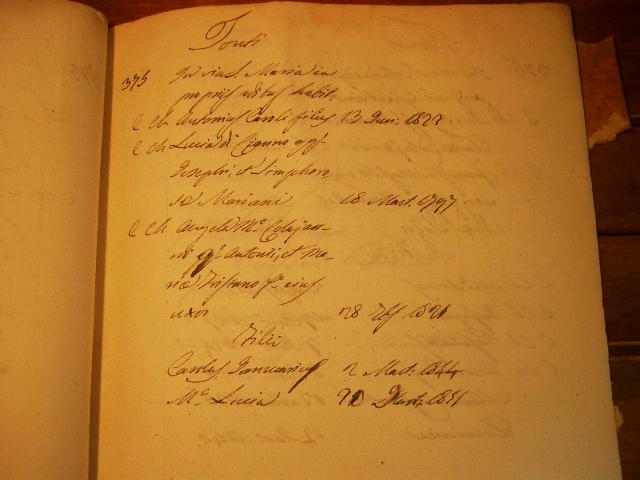 Tonti
375 In via S. Maria in
propriis aedibus habit.
C Ch Antonius Caroli filius 13 Jun: 1822
C Ch Lucia di Cianno qq.
Josephi, et Simphoro
sae Mariani 18 Mart. 1797
C Ch Angela Ma. Colajan-
ni qq. Antonii, et Ma-
riae Tristano fa. ejus
uxor 28 7bris 1821
Filii
Carolus Januarius 2 Mart: 1844
Ma. Lucia 1851